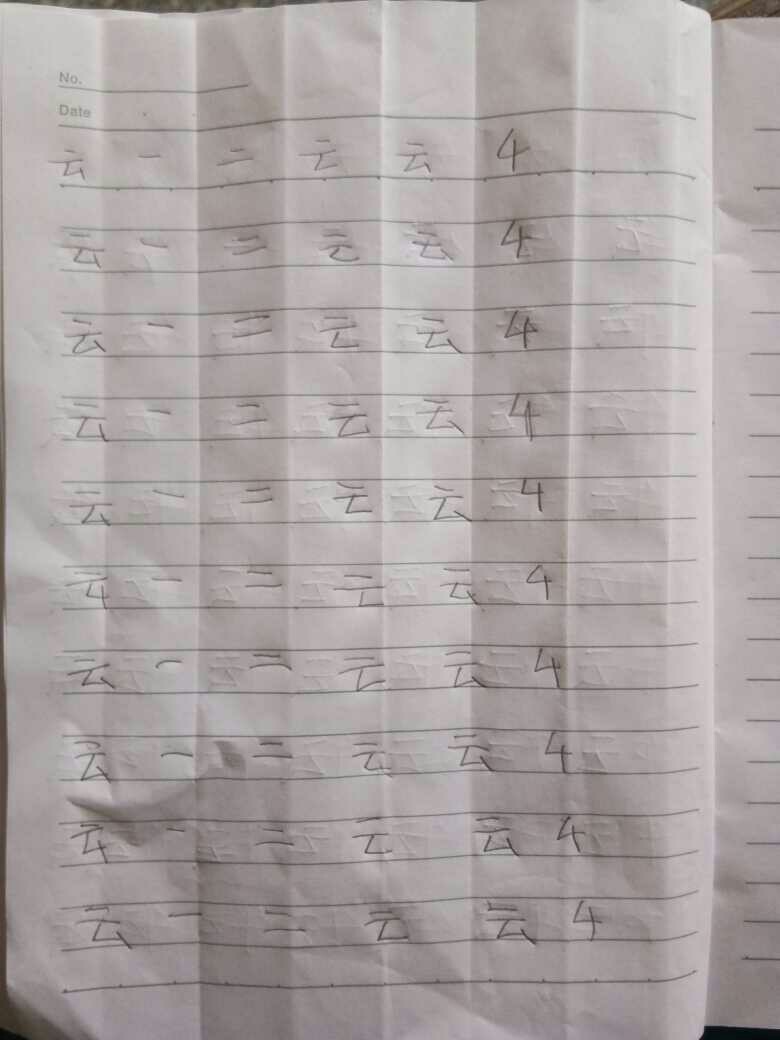 No.
Date
云 一 二 云 云 4
云 一 二 云 云 4
云 一 二 云 云 4
云 一 二 云 云 4
云 一 二 云 云 4
云 一 二 云 云 4
云 一 二 云 云 4
云 一 二 云 云 4
云 一 二 云 云 4
云 一 二 云 云 4